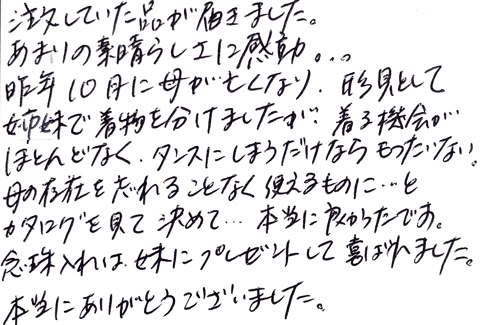 注文していた品が届きました。
あまりの素晴らしさに感動。..
昨年10月に母が亡くなり、形見として
姉妹で着物を分けましたが、着る機会が
ほとんどなく、タンスにしまうだけならもったいない。
母の存在を忘れることなく使えるものに…と
カタログを見て決めて…本当に良かったです。
念珠入れは妹にプレゼントして喜ばれました。
本当にありがとうございました。